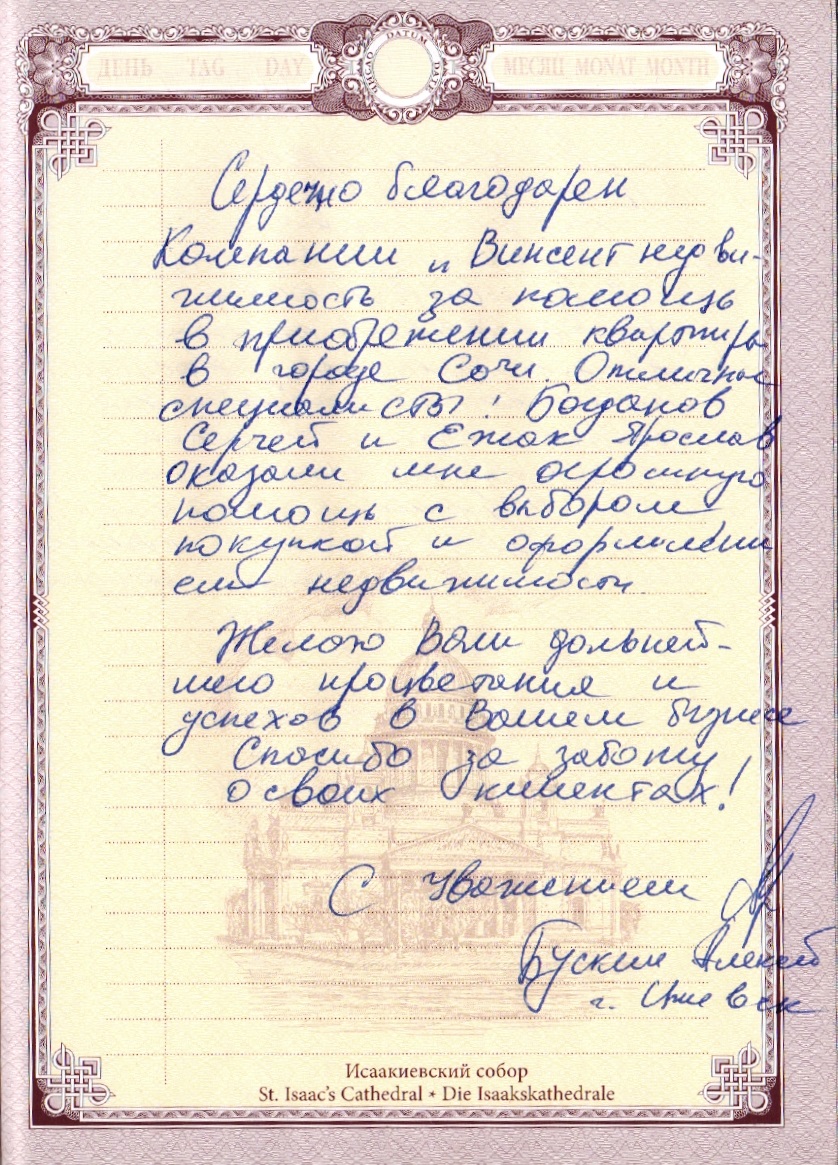 ДЕНЬ TAG DAY
ЧИСЛО DATUM DATE
МЕСЯЦ MONAT MONTH
Сердечно благодарен
Компании „ Винсент недви-
жимость за помощь
в приобретении квартиры
в городе Сочи. Отличные
специалисты! Богданов
Сергей и Ежак Ярослав
оказали мне огромную
помощь с выбором,
покупкой и оформлени
ем недвижимости.
Желаю Вам дальней-
шего процветания и
успехов в Вашем бизнесе
Спасибо за заботу
о своих клиентах!
С уважением
Бускин Алексей
г. Ижевск
Исаакиевский собор
St. Isaac's Cathedral * Die Isaakskathedrale